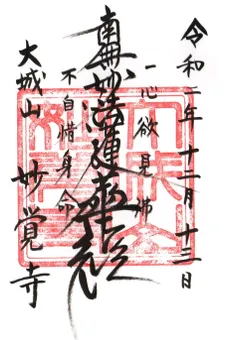 令和二年十二月十三日
一心欲見佛
南無妙法蓮華経
不自惜身命
大城山 妙覺寺